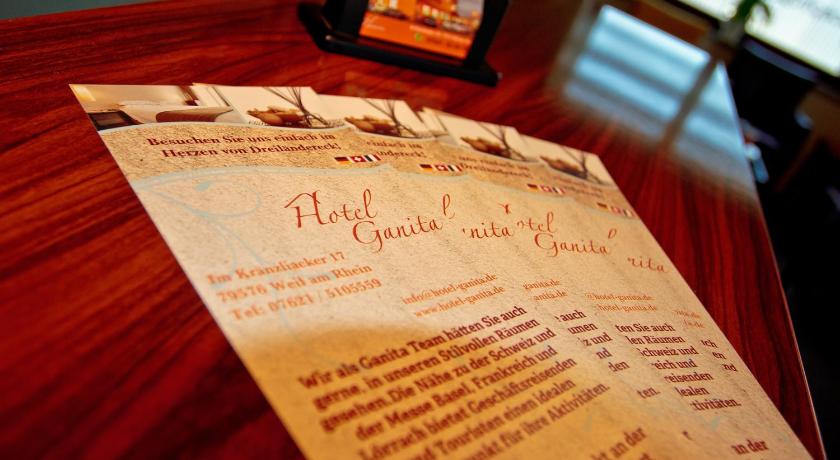 Besuchen Sie uns einfach im
Herzen von Dreiländereck!
einfach im
ndereck!
uns einfach im
Dreiländereck!
einfach im
ndereck!
Hotel
Ganita
nita
otel
Ganita
rita
Im Kränzliacker 17
79576 Weil am Rhein
Tel: 07621 / 5105559
info@hotel-ganita.de
www.hotel-ganita.de
ganita.de
anita.de
@hotel-ganita.de
hotel-ganita.de
Wir als Ganita Team hätten Sie auch
gerne, in unseren Stilvollen Räumen
gesehen. Die Nähe zu der Schweiz und
der Messe Basel, Frankreich und
Lörrach bietet Geschäftsreisenden
und Touristen einen idealen
punkt für ihre Aktivitäten.
auch
umen
und
und
nden
ten Sie auch
len Räumen
chweiz und
eich und
eisenden
dealen
tivitäten.
kt an der
an der